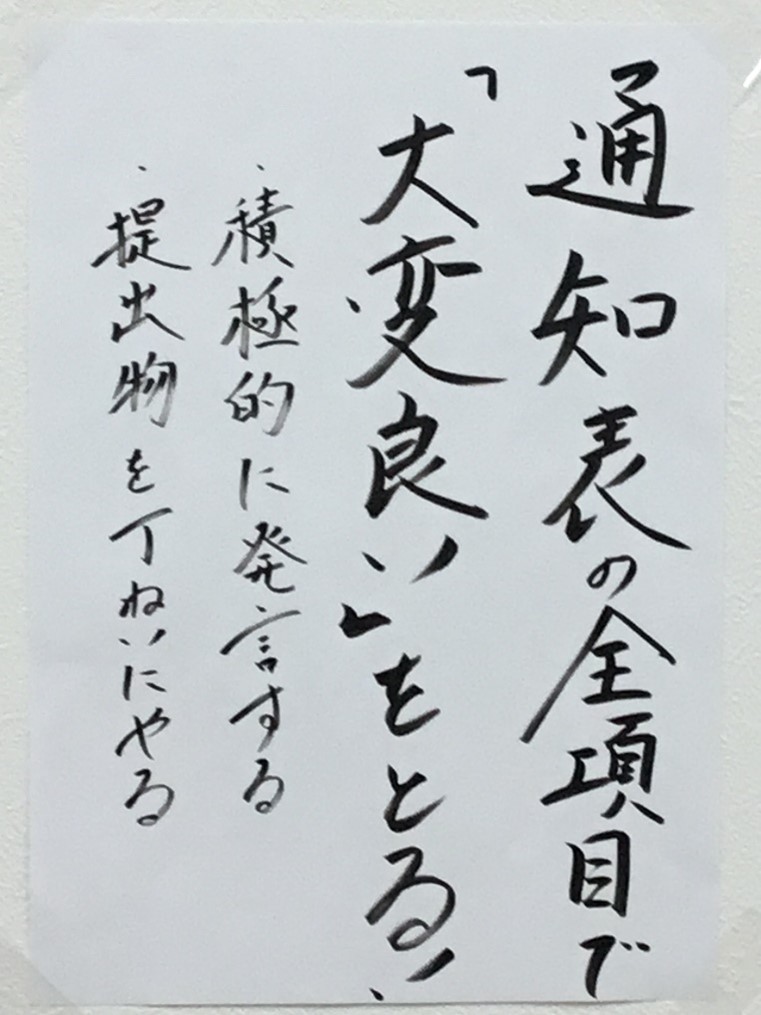 通知表の全項目で
「大変良い」をとる!
・積極的に発言する
・提出物を丁ねいにやる